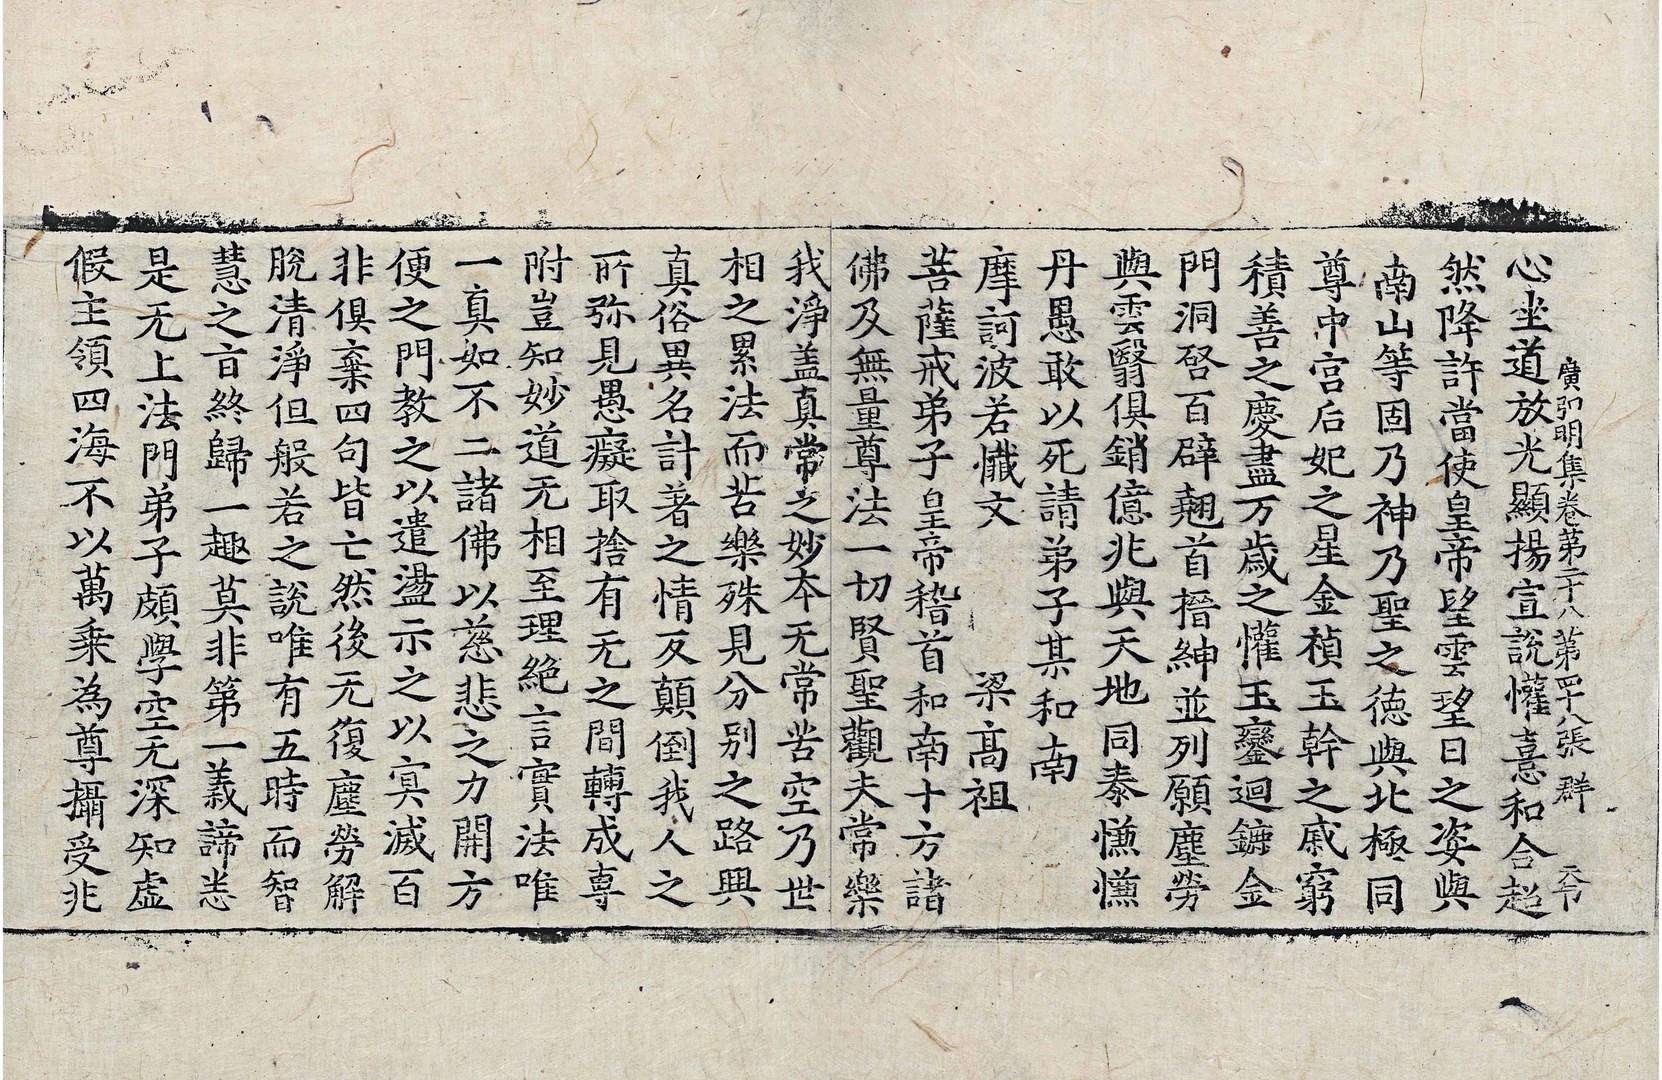 廣弘明集卷第二十八 第四十八張 群
心坐道放光顯揚宣說懽憙和合超
然降許當使皇帝望雲望日之姿與
南山等固乃神乃聖之徳與北極同
尊中宮后妃之星金禎玉幹之戚窮
積善之慶盡万歳之懽玉鑾迴鑣金
門洞啓百辟翹首搢紳並列願塵勞
與雲翳俱銷億兆與天地同泰慊慊
丹愚敢以死請弟子某和南
摩訶波若懺文 梁高祖
菩薩戒弟子皇帝稽首和南十方諸
佛及無量尊法一切賢聖觀夫常樂
我淨盖真常之妙本无常苦空乃世
相之累法而苦樂殊見分別之路興
真俗異名計著之情反顛倒我人之
所弥見愚癡取捨有无之間轉成專
附豈知妙道无相至理絶言實法唯
一真如不二諸佛以慈悲之力開方
便之門教之以遣盪示之以冥滅百
非俱棄四句皆亡然後无復塵勞解
脫清淨但般若之說唯有五時而智
慧之旨終歸一趣莫非第一義諦悉
是无上法門弟子頗學空无深知虛
假主領四海不以萬乘為尊攝受兆